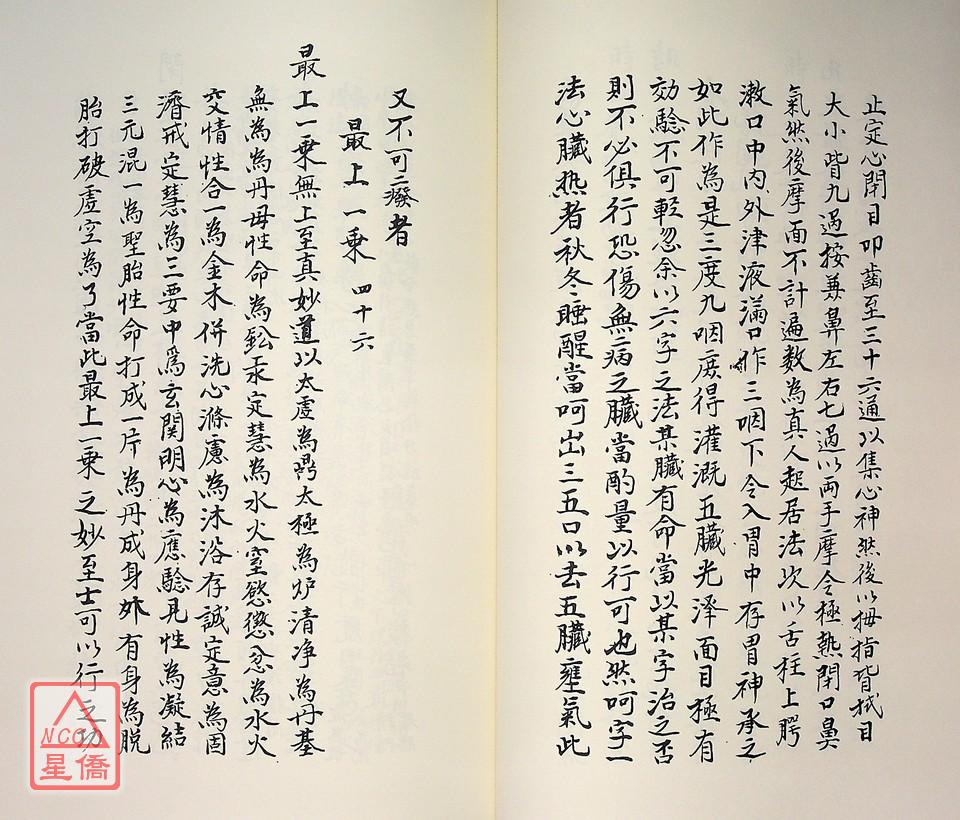 止定心閉目叩齒至三十六通以集心神然後以拇指背拭目
大小眥九過按兼鼻左右七過以兩手摩令極熱閉口鼻
氣然後摩面不計遍數為真人起居法次以舌柱上腭
漱口中內外津液滿口作三咽下令入胃中存胃神承之
如此作為是三度九咽庶得灌溉五臟光澤面目極有
効驗不可輕忽余以六字之法某臟有命當以某字治之否
則不必俱行恐傷無病之臟當酌量以行可也然呵字一
法心臟热者秋冬睡醒當呵出三五口以去五臟壅氣此
又不可廢者
最上一乘 四十六
最上一乘無上至真妙道以太虛為鼎太極為炉清净為丹基
無為為丹母性命為鉛汞定慧為水火窒慾懲忿為水火
交情性合一為金木併洗心滌慮為沐浴存誠定意為固
濟戒定慧為三要中爲玄関明心為應驗見性為凝結
三元混一為聖胎性命打成一片為丹成身外有身為脱
胎打破虛空為了當此最上一乘之妙至士可以行之功
NCC
星僑